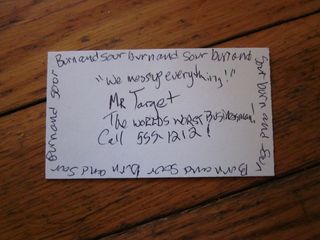 Burnandsour burn and sour burn and
Sour burn and Sour
Burn and Sour burn and Sour
Burnand sour
"We messup everything!"
Mr Target
The worlds worst Businessman!
Call 555-1212!